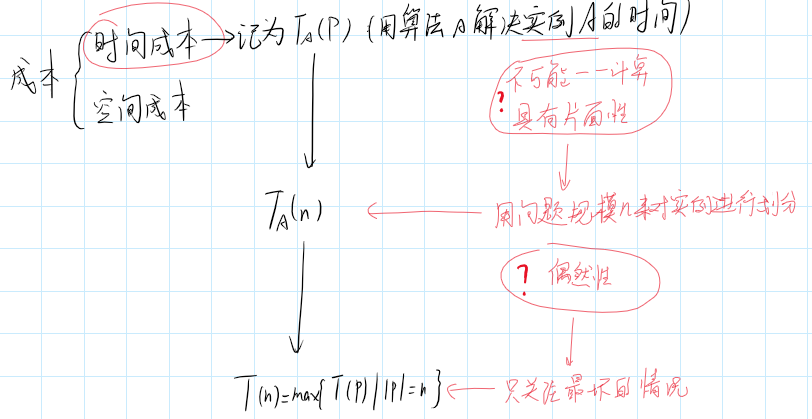 成本
时间成本→记为 T_A(P) (用算法A解决实例A的时间)
空间成本
? 不可能一一计算
具有片面性
T_A(n) ← 用问题规模n来对实例进行划分
? 偶然性
T(n)=max{T(P)||P|=n} ← 只关注最坏的情况